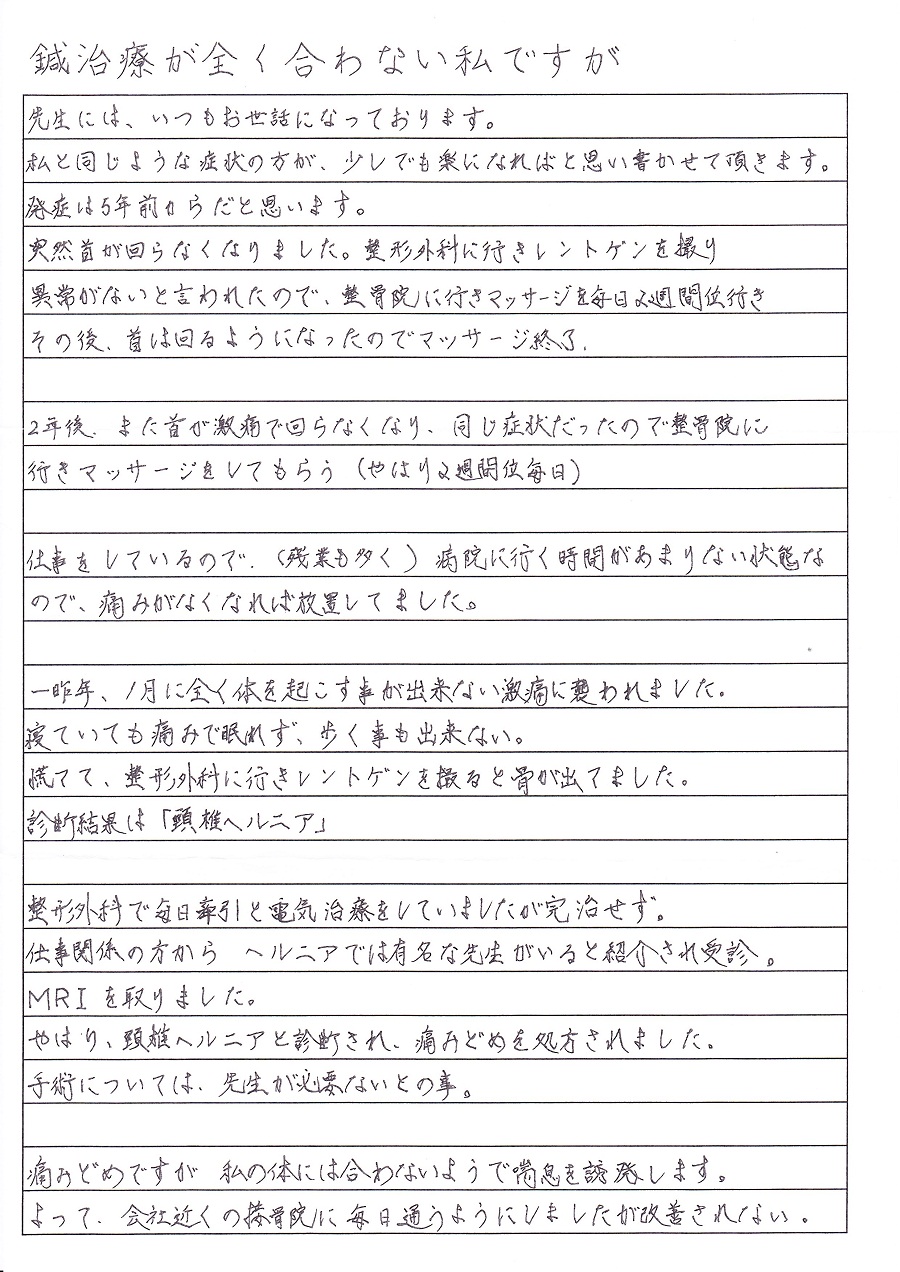 鍼治療が全く合わない私ですが
先生には、いつもお世話になっております。
私と同じような症状の方が、少しでも楽になればと思い書かせて頂きます。
発症は5年前からだと思います。
突然首が回らなくなりました。整形外科に行きレントゲンを撮り
異常がないと言われたので、整骨院に行きマッサージを毎日2週間位行き
その後、首は回るようになったのでマッサージ終了.
2年後、また首が激痛で回らなくなり、同じ症状だったので整骨院に
行きマッサージをしてもらう(やはり2週間位毎日)
仕事をしているので、(残業も多く)病院に行く時間があまりない状態な
ので、痛みがなくなれば放置してました。
一昨年、1月に全く体を起こす事が出来ない激痛に襲われました。
寝ていても痛みで眠れず、歩く事も出来ない。
慌てて、整形外科に行きレントゲンを撮ると骨が出てました。
診断結果は「頸椎ヘルニア」
整形外科で毎日牽引と電気治療をしていましたが完治せず。
仕事関係の方から ヘルニアでは有名な先生がいると紹介され受診。
MRIを取りました。
やはり、頸椎ヘルニアと診断され、痛みどめを処方されました。
手術については、先生が必要ないとの事。
痛みどめですが 私の体には合わないようで喘息を誘発します。
よって、会社近くの接骨院に毎日通うようにしましたが改善されない。